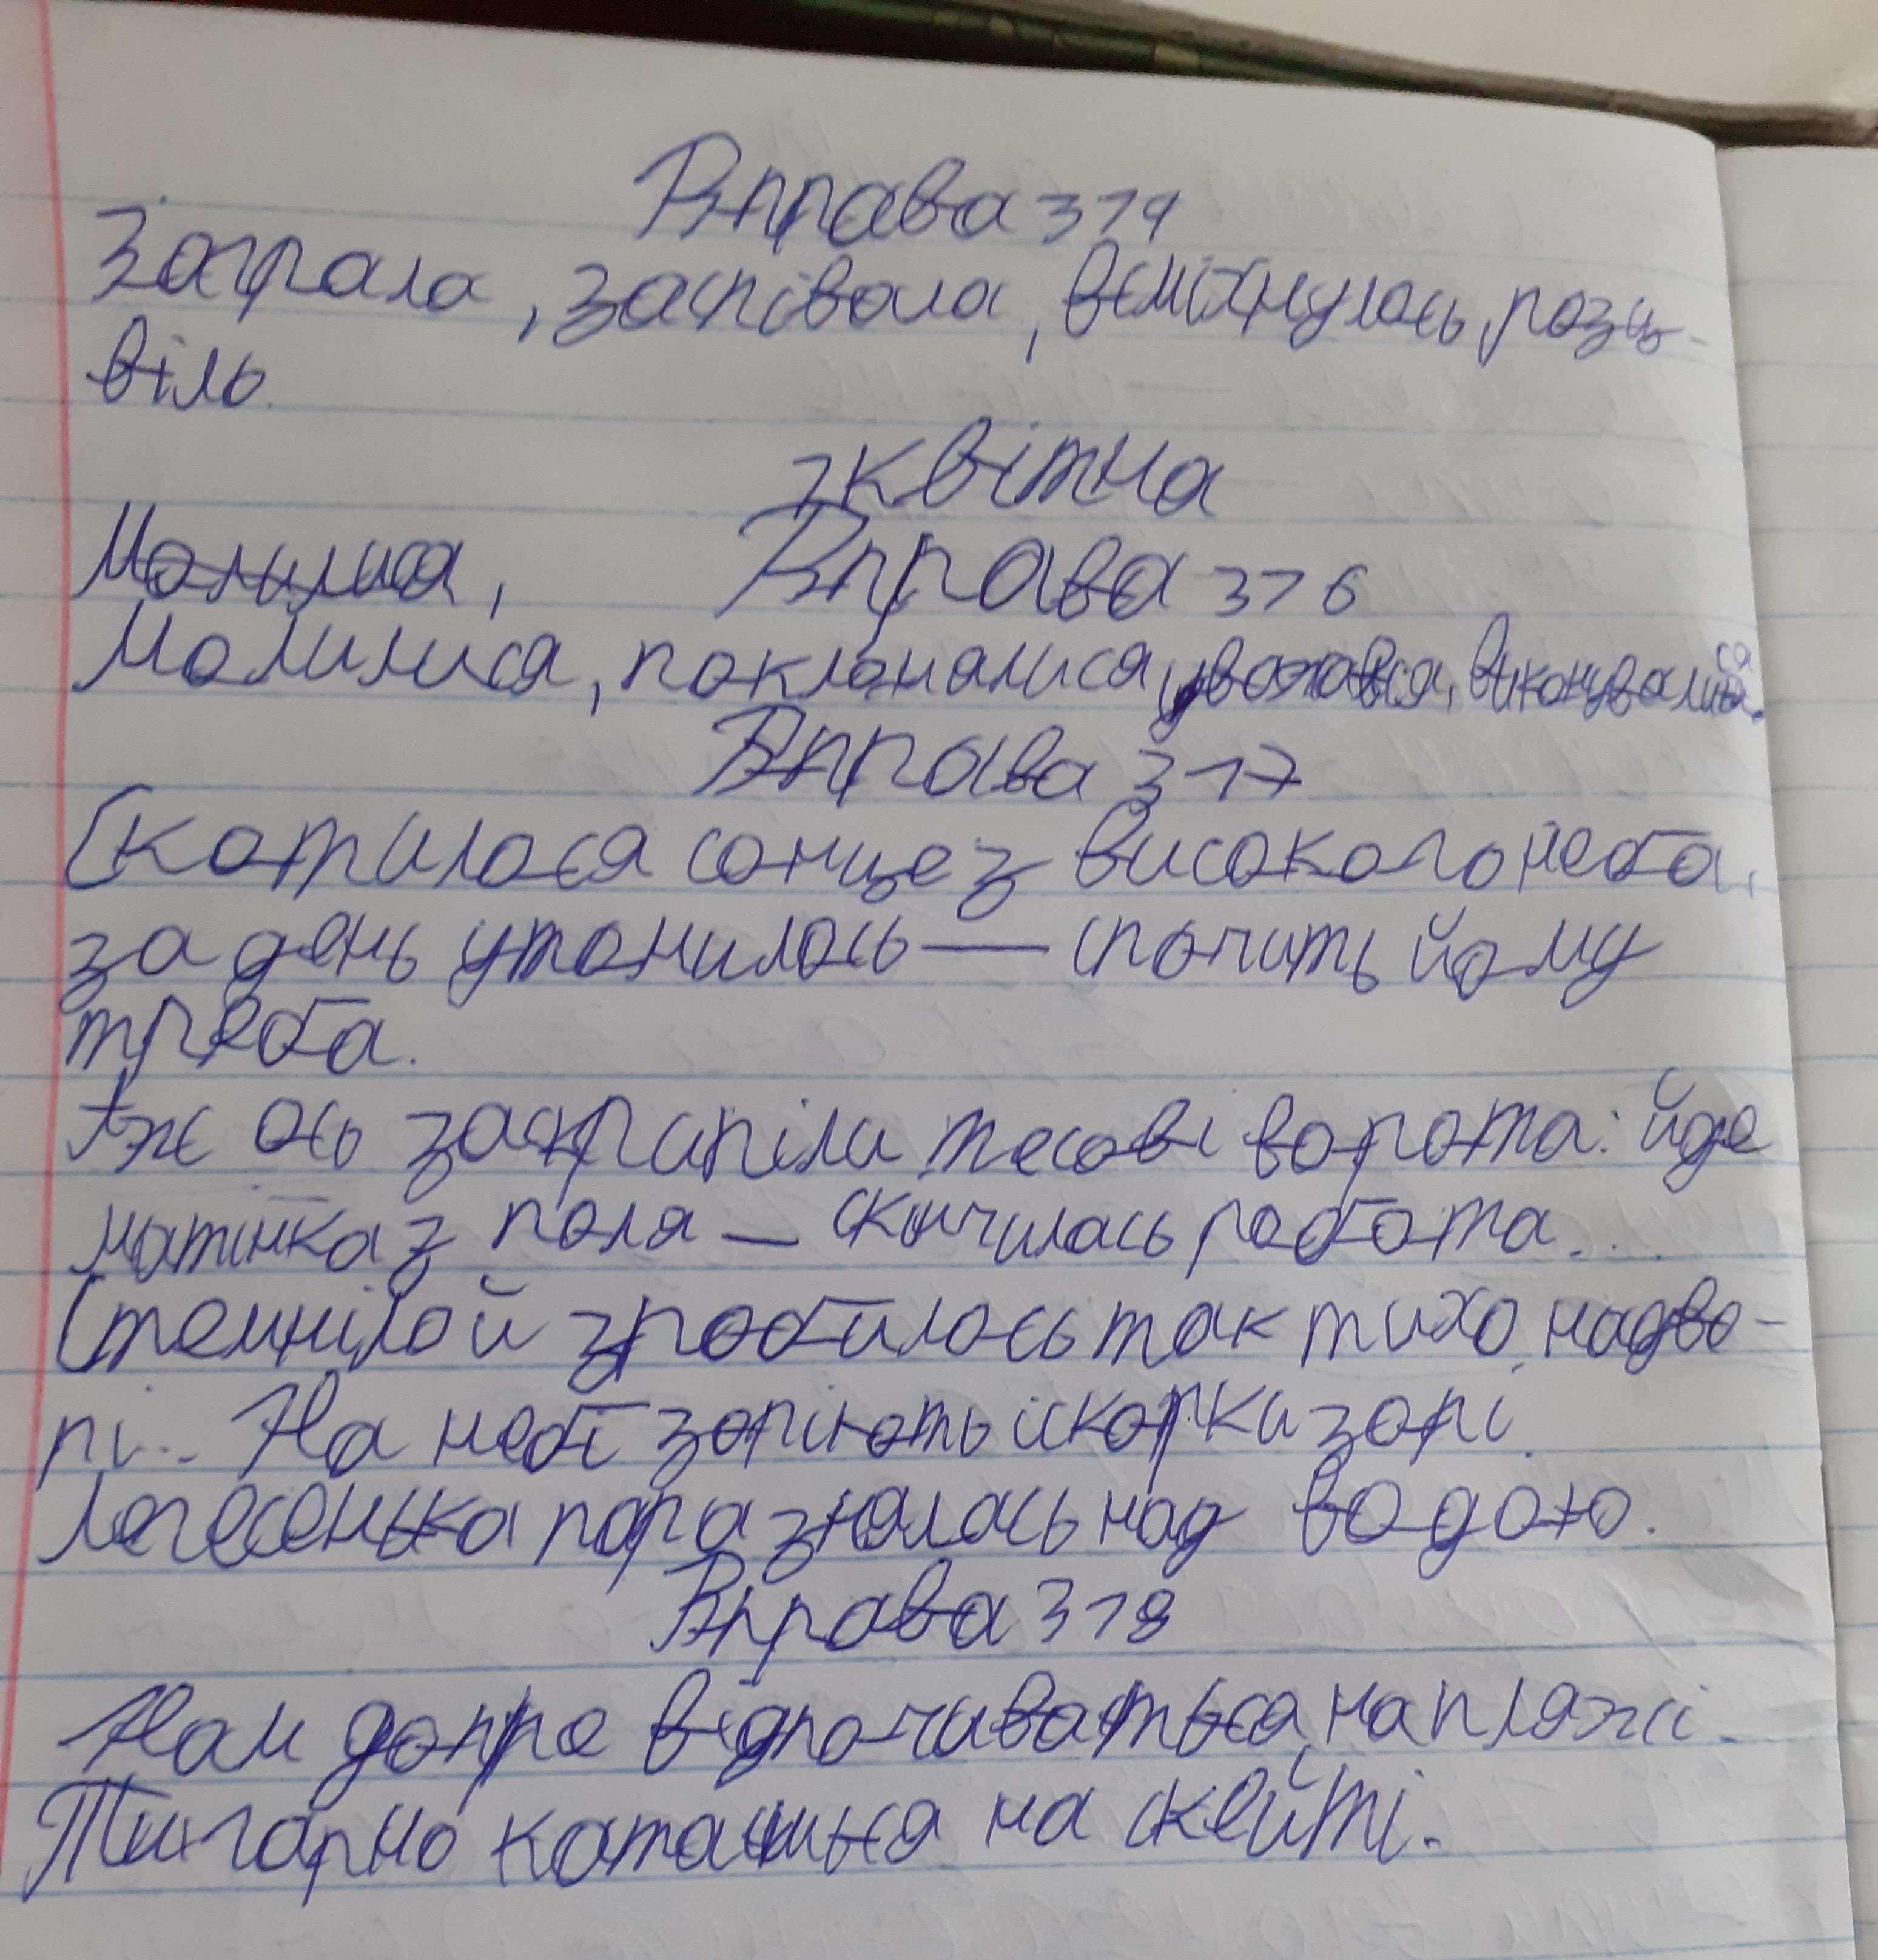 Вправа 314
Заграла, заспівала, всміхнулась, розц-
віль.
1 квітна
Молилися, Вправа 316
Молилися, поклонялися, уважався, виконувалися.
Вправа 317
Скотилося сонце з високого неба,
за день утомилось — спочить йому
треба.
Аж ось заскрипіли тесові ворота: йде
матінка з поля — скінчилась робота...
Стемніло й зробилось так тихо надво-
рі... На небі зоріють іскорки зорі.
Легесенька пара знялась над водою.
Вправа 318
Нам допре відпочивається на пляжі.
Ти гарно катаешься на скейті.